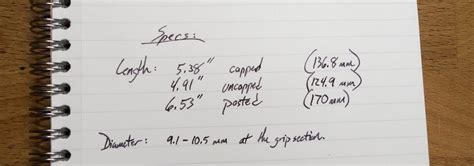 Specs:
Length: 5.38" capped (136.8 mm)
4.91" uncapped (124.9 mm)
6.53" posted (170 mm)
Diameter: 9.1 - 10.5 mm at the grip section.